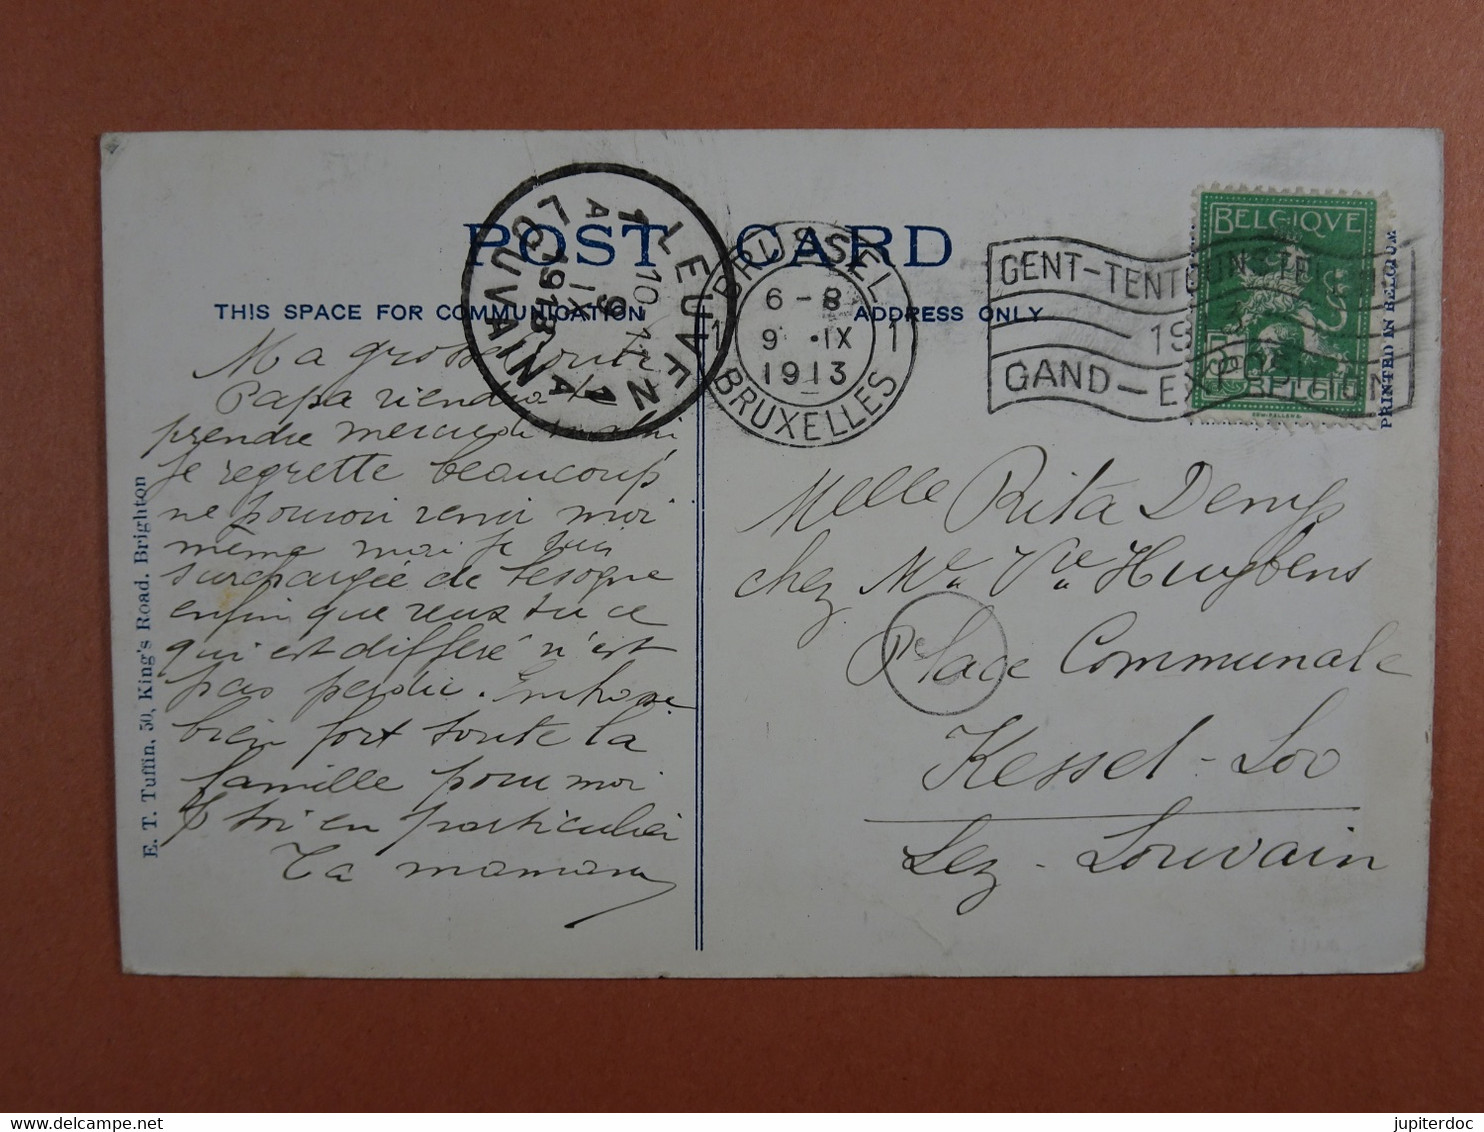 POST CARD
THIS SPACE FOR COMMUNICATION
ADDRESS ONLY
E. T. Tuffin, 50, King's Road, Brighton
PRINTED IN BELGIUM
LEUVEN
LOUVAIN
1A
10-11
9
IX
1913
BRUSSEL
1 1
6-8
9 ·IX
1913
BRUXELLES
GENT-TENTOONSTE
GAND-EXPOSITION
BELGIQVE
BELGIË
Ma grosse
Papa viendra te
prendre mercredi
Je regrette beaucoup
ne pouvoir venir moi
même mai je suis
surchargée de besogne
enfin que veux tu ce
qui est differé n'est
pas perdu. Embrasse
bien fort toute la
famille pour moi
& toi en particulier
Ta maman
Melle Rita
chez Me Vve Huybens
Place Communale
Kessel-Loo
Lez-Louvain
jupiterdoc